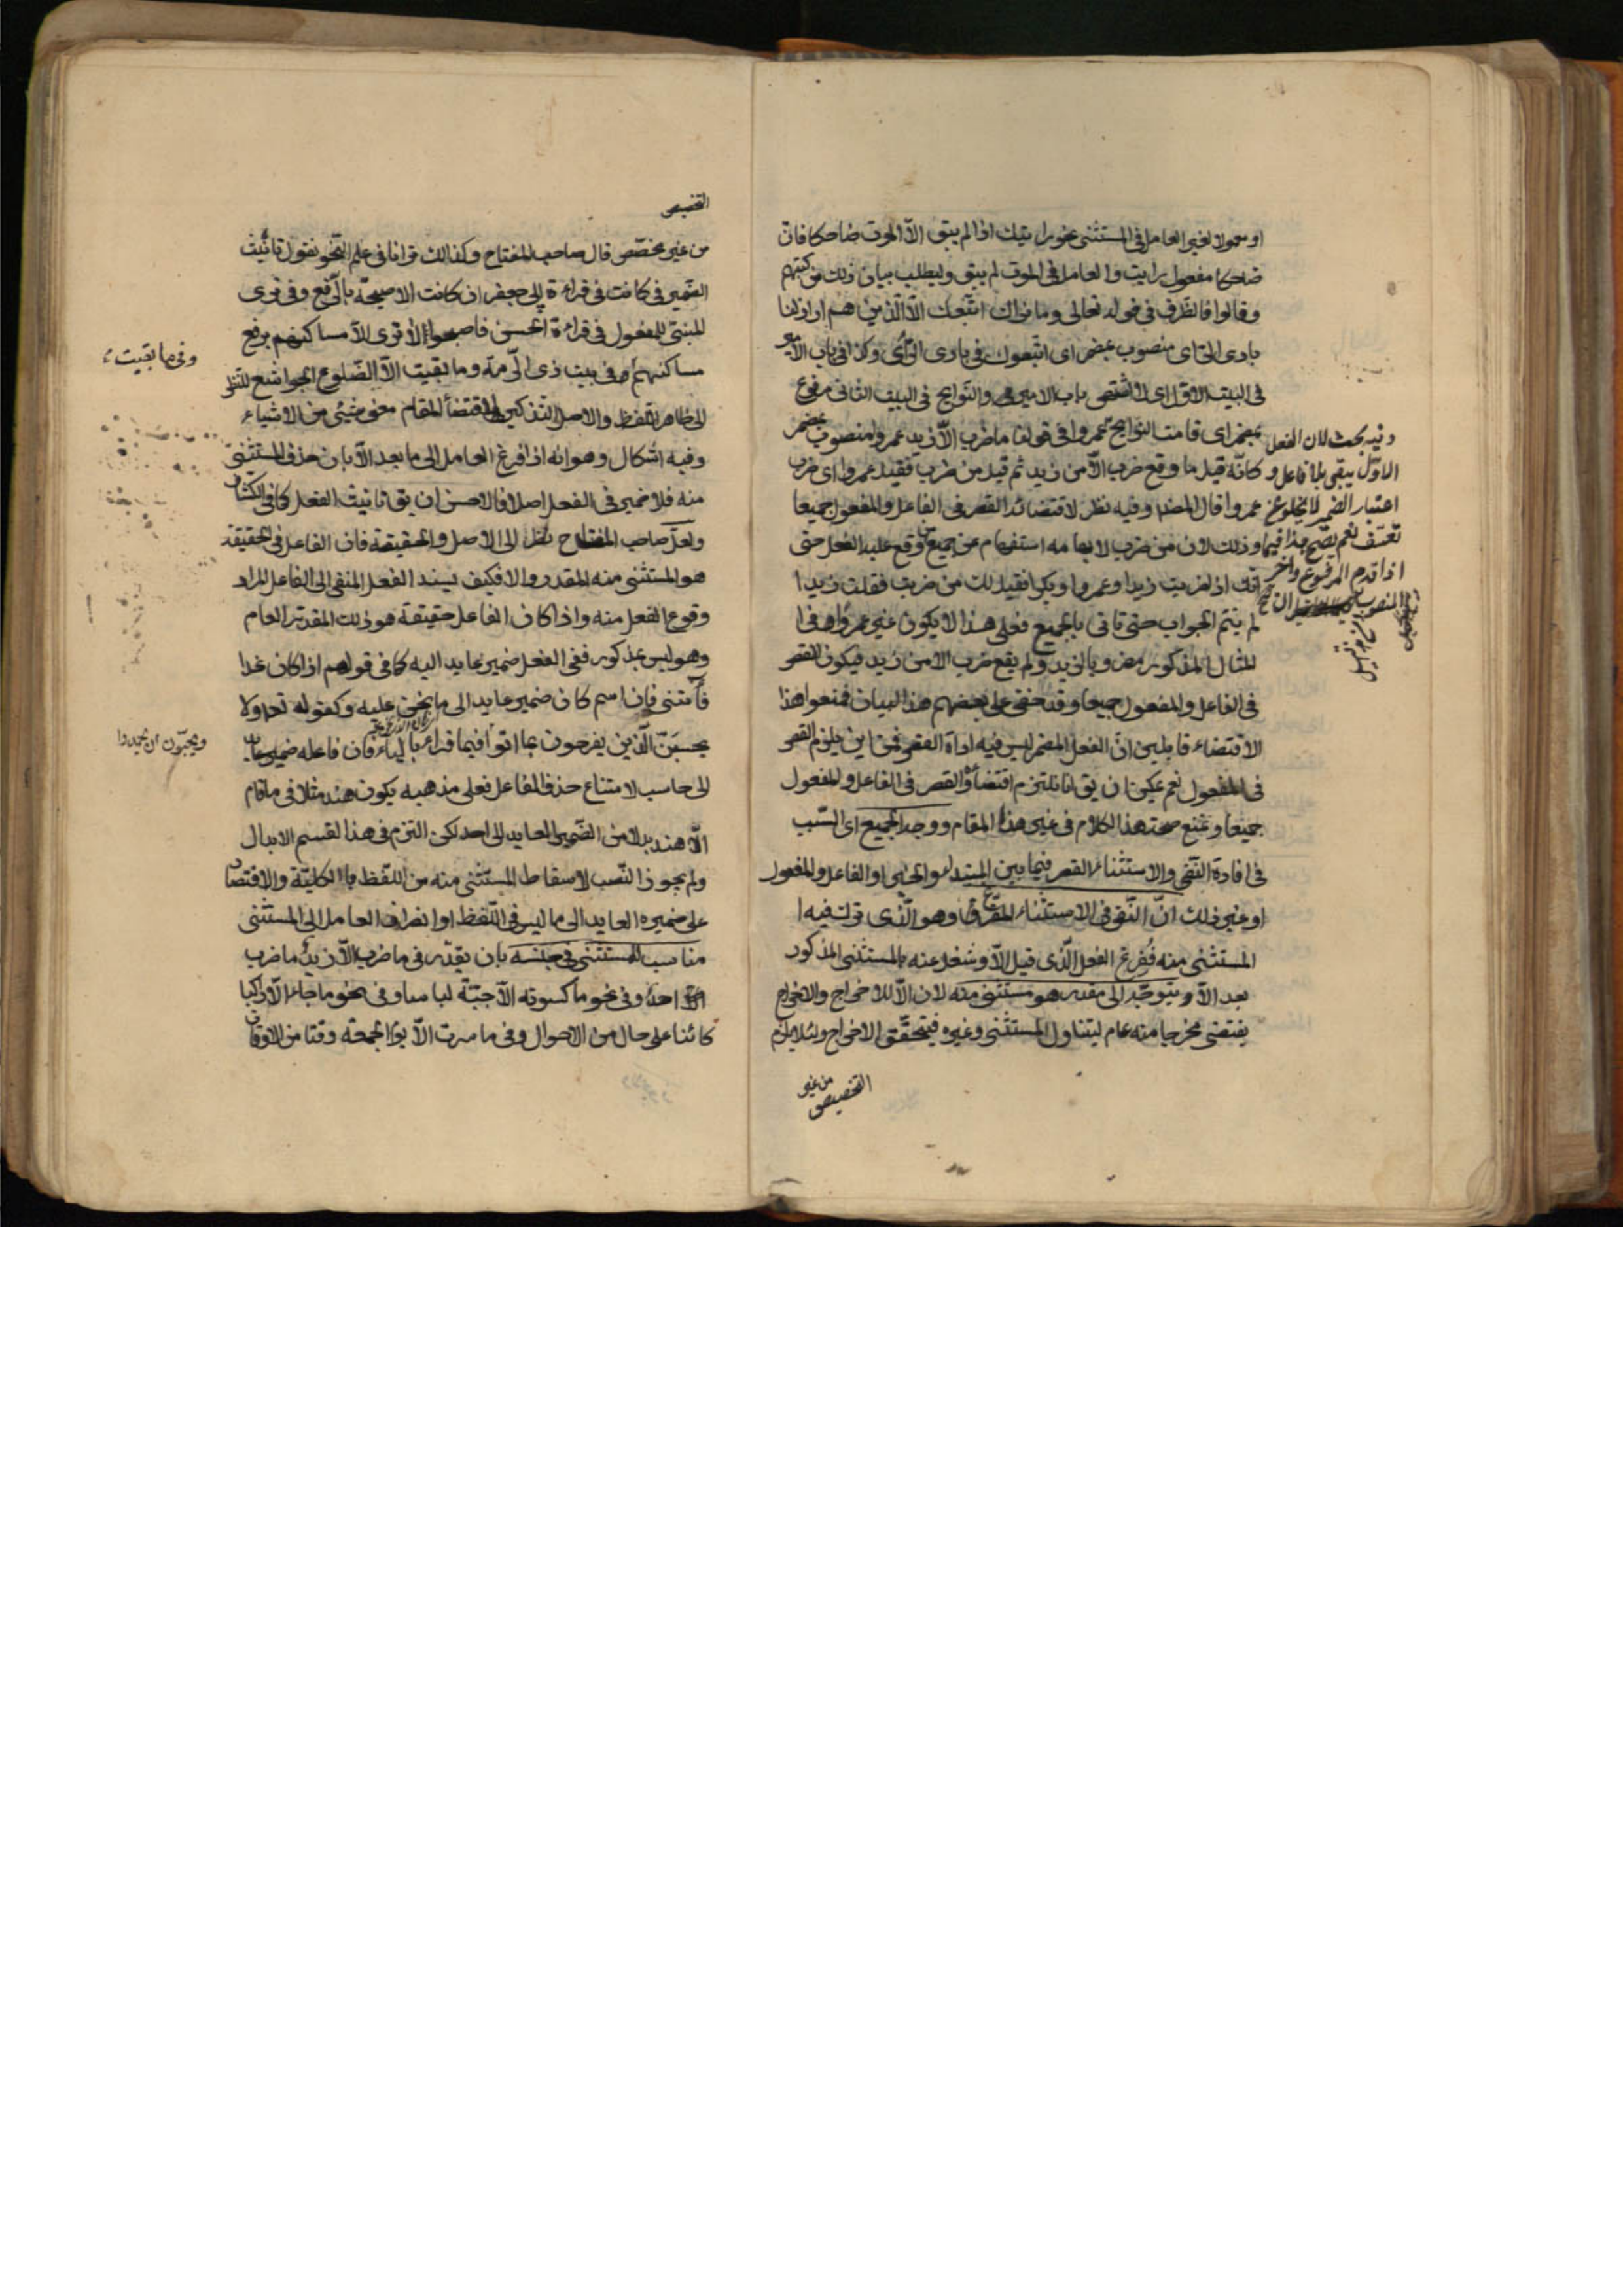 او معمولا لغير العامل فى المستثنى نحو رايتك اذا لم يبق الّا الموت ضاحكا فانّ
ضاحكا مفعول رايت والعامل فى الموت لم يبق وليطلب بيان ذلك من كتبهم
وقالوا فالظرف فى قوله تعالى وما نراك اتّبعك الّا الّذين هم اراذلنا
بادى الراى منصوب بمضمر اى اتّبعوك فى بادى الرّأى وكذا فى باب الامير
فى البيت الاوّل اى باب الامير والنّوايح فى البيت الثانى مرفوع
بمضمر اى قامت النوايح وعمروا فى قولنا ما ضرب الّا زيد عمروا منصوب بمضمر
كانّه قيل ما وقع ضرب الّا من زيد ثم قيل من ضرب فقيل عمروا اى ضرب
عمروا قال المصنف وفيه نظر لاقتضائه القصر فى الفاعل والمفعول جميعا
وذلك لان من ضرب لابهامه استفهام عن جميع من وقع عليه الفعل حتى
انك اذا ضربت زيدا وعمروا وبكرا فقيل لك من ضربت فقلت زيدا
لم يتمّ الجواب حتى تاتى بالجميع فعلى هذا لا يكون غير عمرو فى هذا
المثال المذكور مضروبا لزيد ولم يقع ضرب الا من زيد فيكون القصر
فى الفاعل والمفعول جميعا وقد خفى على بعضهم هذا البيان فمنعوا هذا
الاقتضاء قايلين انّ الفعل المضمر ليس فيه اداة القصر فمن اين يلزم القصر
فى المفعول نعم يمكن ان يق انا نلتزم اقتضاؤه القصر فى الفاعل والمفعول
جميعا ونمنع صحة هذا الكلام فى غير هذا المقام ووجه الجميع اى السّبب
فى افادة النّفى والاستثناء القصر فيما بين المبتداء والخبر او الفاعل والمفعول
او غير ذلك انّ النّفى فى الاستثناء المفرّغ وهو الّذى ترك فيه
المستثنى منه ففرغ الفعل الّذى قبل الّا وشغل عنه بالمستثنى المذكور
بعد الّا ويتوجّه الى مقدر هو مستثنى منه لان الّا للاخراج والاخراج
يقتضى مخرجا منه عام ليتناول المستثنى وغيره فيتحقّق الاخراج ولئلا يلزم
التخصيص من غير
وفيه بحث لان الفعل
الاوّل يبقى بلا فاعل و
اعتبار الضمير لا يخلو عن
تعسّف نعم يصّح هذا فيما
اذا قدم المرفوع واخر
المنصوب
التخصيص
من غير مخصّص قال صاحب المفتاح وكذالك ترانا فى علم النّحو نقول تانيث
الضّمير فى كانت فى قراءة ابى جعفر ان كانت الا صيحة بالرّفع وفى ترى
المبنى للمفعول فى قراءة الحسن فاصبحوا لا ترى الّا مساكنهم برفع
مساكنهم وفى بيت ذى الرّمّة وما بقيت الّا الضّلوع الجراشع للنّظر
الى ظاهر اللّفظ والاصل التذكير لاقتضاء المقام معنى شيئى من الاشياء
وفيه اشكال وهو انه اذا فرغ العامل الى ما بعد الّا بان حذف المستثنى
منه فلا ضمير فى الفعل اصلا فالاحسن ان يق تانيث الفعل كما فى الكشاف
ولعلّ صاحب المفتاح نظر الى الاصل والحقيقة فان الفاعل فى الحقيقة
هو المستثنى منه المقدر والا فكيف يسند الفعل المنفى الى الفاعل المراد
وقوع الفعل منه واذا كان الفاعل حقيقة هو ذلك المقدّر العام
وهو ليس بمذكور ففى الفعل ضمير عايد اليه كما فى قولهم اذا كان غدا
فأتنى فان اسم كان ضمير عايد الى ما نحن عليه وكقوله تع ولا
يحسبنّ الّذين يفرحون بما اتوا فيما قراء بالياء فان فاعله ضمير عايد
الى حاسب لامتناع حذف الفاعل فعلى مذهبه يكون هند مثلا فى ما قام
الّا هند بدلا من الضّمير العايد الى احد لكن التزم فى هذا القسم الابدال
ولم يجوز النّصب لاسقاط المستثنى منه من اللّفظ بالكليّة والاقتصار
على ضميره العايد الى ما ليس فى اللّفظ او انصراف العامل الى المستثنى
مناسب للمستثنى فى جنسه بان يقدّر فى ما ضرب الّا زيد ما ضرب
احد وفى نحو ما كسوته الّا جبّة لباسا وفى نحو ما جاء الّا راكبا
كائنا على حال من الاحوال وفى ما سرت الّا يوم الجمعة وقتا من الاوقات
وفى ما بقيت
ويحبّون ان يحمدوا